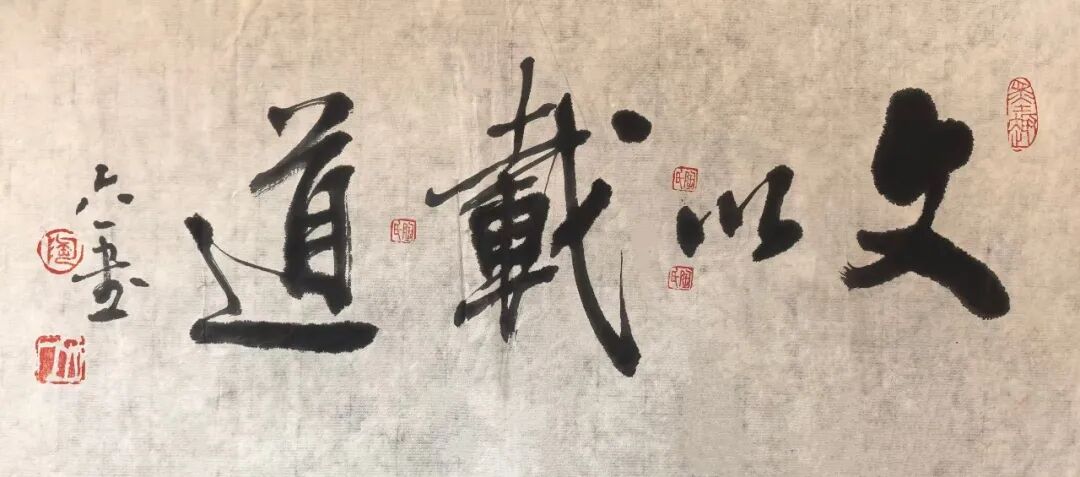 文以載道
六一書